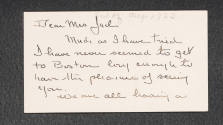 Dear Mrs Jack
Much as I have tried
I have never seemed to get
to Boston long enough to
have the pleasure of seeing
you.
We are all having a